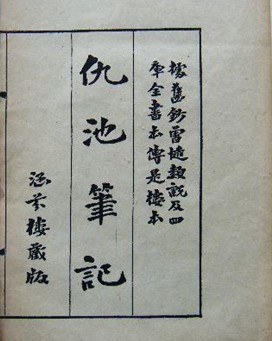 據舊鈔曾慥類說及四
庫全書本傳是樓本
仇池筆記
涵芬樓藏版